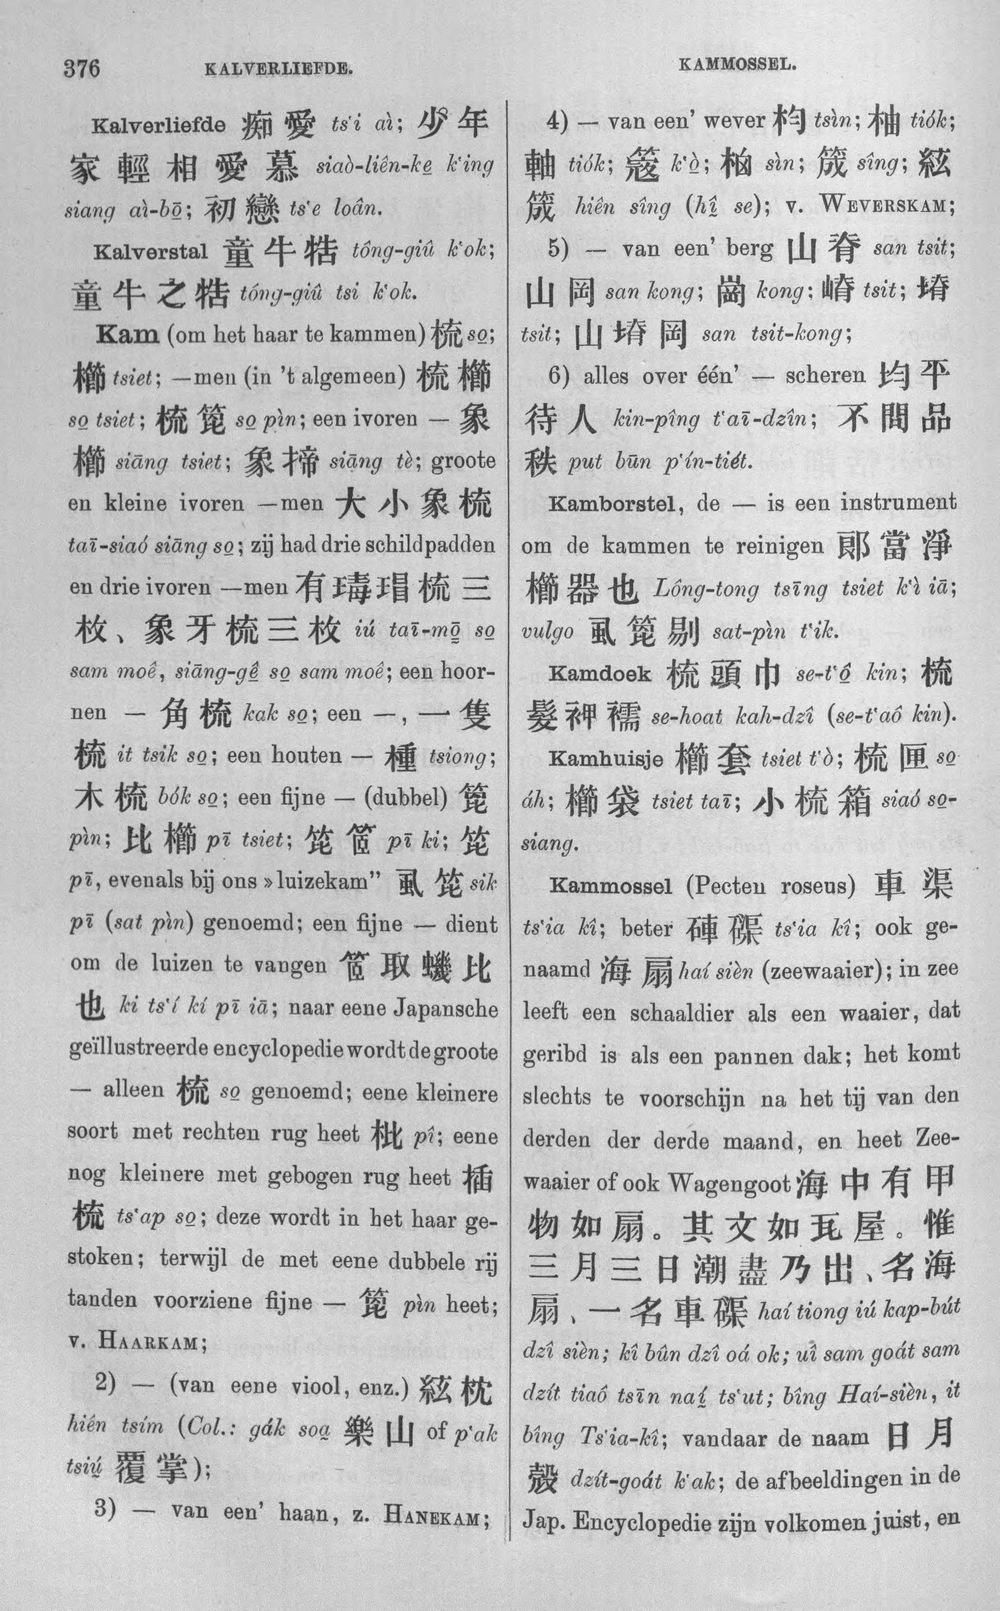 376
KALVERLIEFDE.
KAMMOSSEL.
Kalverliefde 痴愛 ts‘i aì; 少年
家輕相愛慕 siaò-liên-ke̱ k‘ing
siang aì-bō̱; 初戀 ts‘e loân.
Kalverstal 童牛牿 tóng-giû k‘ok;
童牛之牿 tóng-giû tsi k‘ok.
Kam (om het haar te kammen) 梳 so̱;
櫛 tsiet; —men (in 't algemeen) 梳櫛
so̱ tsiet; 梳篦 so̱ pìn; een ivoren — 象
櫛 siāng tsiet; 象揥 siāng tè; groote
en kleine ivoren —men 大小象梳
taī-siaó siāng so̱; zij had drie schildpadden
en drie ivoren —men 有瑇瑁梳三
枚、象牙梳三枚 iú taī-mō̱ so̱
sam moê, siāng-gê̱ so̱ sam moê; een hoor-
nen — 角梳 kak so̱; een —, 一隻
梳 it tsik so̱; een houten — 㮔 tsiong;
木梳 bók so̱; een fijne — (dubbel) 篦
pìn; 比櫛 pī tsiet; 笓䇫 pī ki; 笓
pī, evenals bij ons »luizekam” 虱笓 sik
pī (sat pìn) genoemd; een fijne — dient
om de luizen te vangen 䇫取蟣比
也 ki ts‘í kí pī iā; naar eene Japansche
geïllustreerde encyclopedie wordt de groote
— alleen 梳 so̱ genoemd; eene kleinere
soort met rechten rug heet 枇 pî; eene
nog kleinere met gebogen rug heet 插
梳 ts‘ap so̱; deze wordt in het haar ge-
stoken; terwijl de met eene dubbele rij
tanden voorziene fijne — 篦 pìn heet;
v. HAARKAM;
2) — (van eene viool, enz.) 絃枕
hiên tsím (Col.: gák soa̱ 樂山 of p‘ak
tsiú̱ 覆掌);
3) — van een' haan, z. HANEKAM;
4) — van een' wever 杓 tsìn; 柚 tiók;
軸 tiók; 簆 k‘ò̱; 㭡 sìn; 筬 sîng; 絃
筬 hiên sîng (hî̱ se); v. WEVERSKAM;
5) — van een' berg 山脊 san tsit;
山岡 san kong; 崗 kong; 嵴 tsit; 塉
tsit; 山塉岡 san tsit-kong;
6) alles over één' — scheren 均平
待人 kin-pîng t‘aī-dzîn; 不間品
秩 put būn p‘ín-tiét.
Kamborstel, de — is een instrument
om de kammen te reinigen 郎當淨
櫛器也 Lông-tong tsīng tsiet k‘ì iā;
vulgo 虱篦剔 sat-pìn t‘ik.
Kamdoek 梳頭巾 se-t‘ô̱ kin; 梳
髮裨襦 se-hoat kah-dzî (se-t‘aô kin).
Kamhuisje 櫛套 tsiet t‘ò; 梳匣 so̱
áh; 櫛袋 tsiet taī; 小梳箱 siaó so̱-
siang.
Kammossel (Pecten roseus) 車渠
ts‘ia kî; beter 硨磲 ts‘ia kî; ook ge-
naamd 海扇 haí sièn (zeewaaier); in zee
leeft een schaaldier als een waaier, dat
geribd is als een pannen dak; het komt
slechts te voorschijn na het tij van den
derden der derde maand, en heet Zee-
waaier of ook Wagengoot 海中有甲
物如扇。其文如瓦屋。惟
三月三日潮盡乃出、名海
扇、一名車磲 haí tiong iú kap-bút
dzî sièn; kî bûn dzî oá ok; uî sam goát sam
dzít tiaô tsīn naí̱ ts‘ut; bîng Haí-sièn, it
bîng Ts‘ia-kî; vandaar de naam 日月
殼 dzít-goát k‘ak; de afbeeldingen in de
Jap. Encyclopedie zijn volkomen juist, en